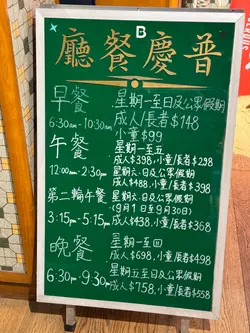 B
廳餐慶普
早餐 星期一至日及公眾假期
成人/長者$148
6:30am-10:30am 小童$99
午餐 星期一至五
成人$398,小童/長者$298
12:00am-2:30pm 星期六.日及公眾假期
成人$488,小童/長者$388
第二輪午餐 星期六.日及公眾假期
(9月1日至9月30日)
3:15pm-5:15pm 成人$438,小童/長者$368
晚餐 星期一至四
成人$698,小童/長者$498
6:30pm-9:30pm 星期五至日及公眾假期
成人$758,小童/長者$558